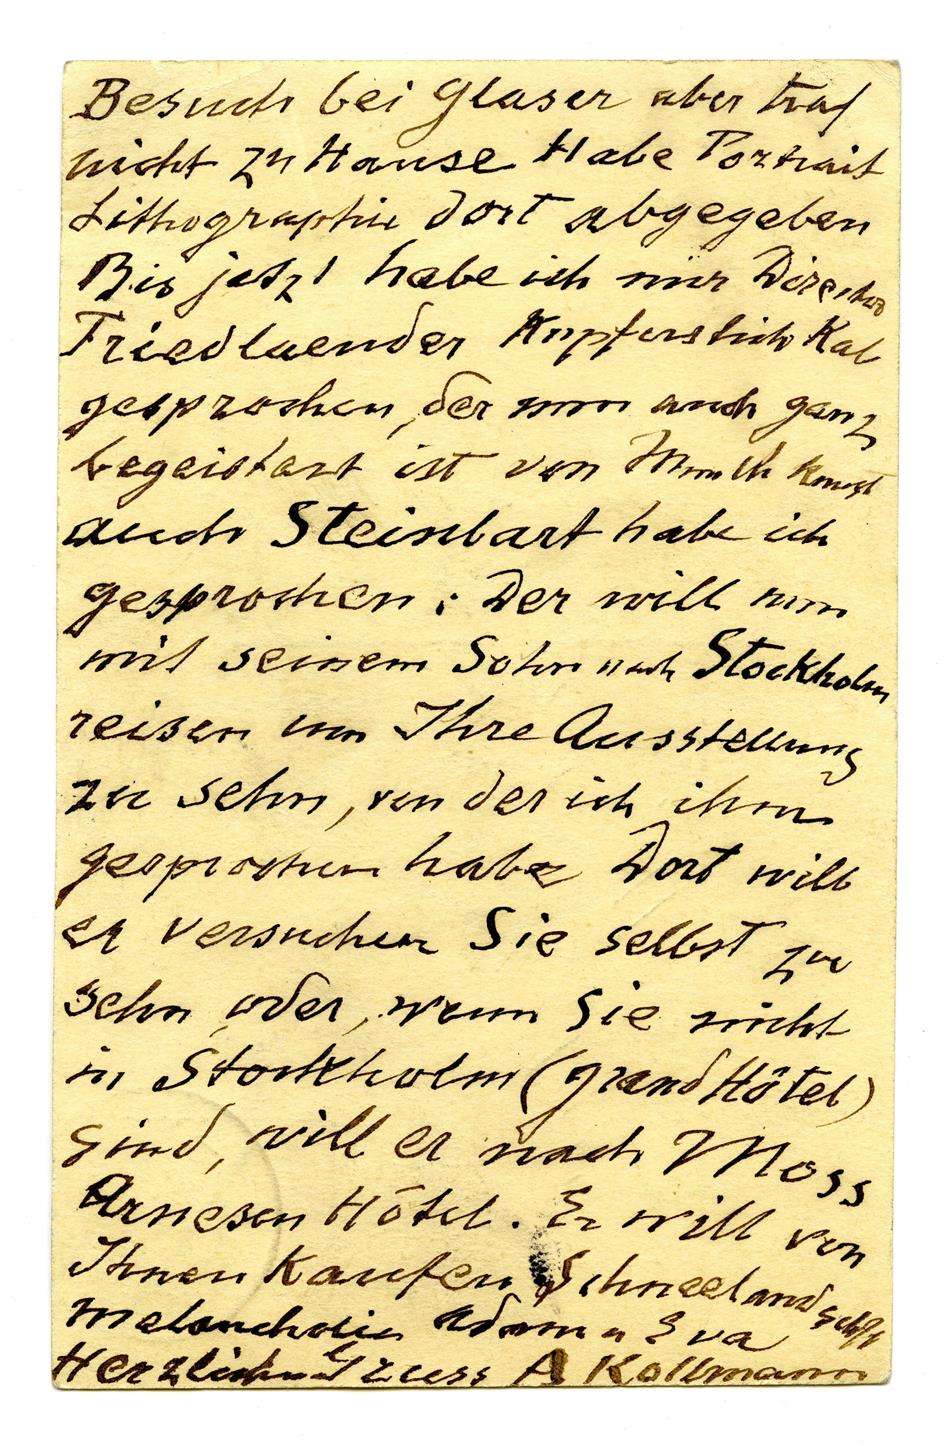 Besuch bei Glaser aber traf
nicht zu Hause Habe Portrait
Lithographie dort abgegeben
Bis jetzt habe ich nur Director
Friedlaender Kupferstich Kab
gesprochen, der nun auch ganz
begeistert ist von Munch kunst
auch Steinbart habe ich
gesprochen: Der will nun
mit seinem Sohn nach Stockholm
reisen um Ihre Ausstellung
zu sehn, von der ich ihm
gesprochen habe Dort will
er versuchen Sie selbst zu
sehn, oder, wenn Sie nicht
in Stockholm (Grand Hôtel)
sind, will er nach Moss
Arnesen Hôtel. Er will von
Ihnen Kaufen Schneelandschaft
Melancholie Adam u Eva
Herzlichen Gruss A Kollmann